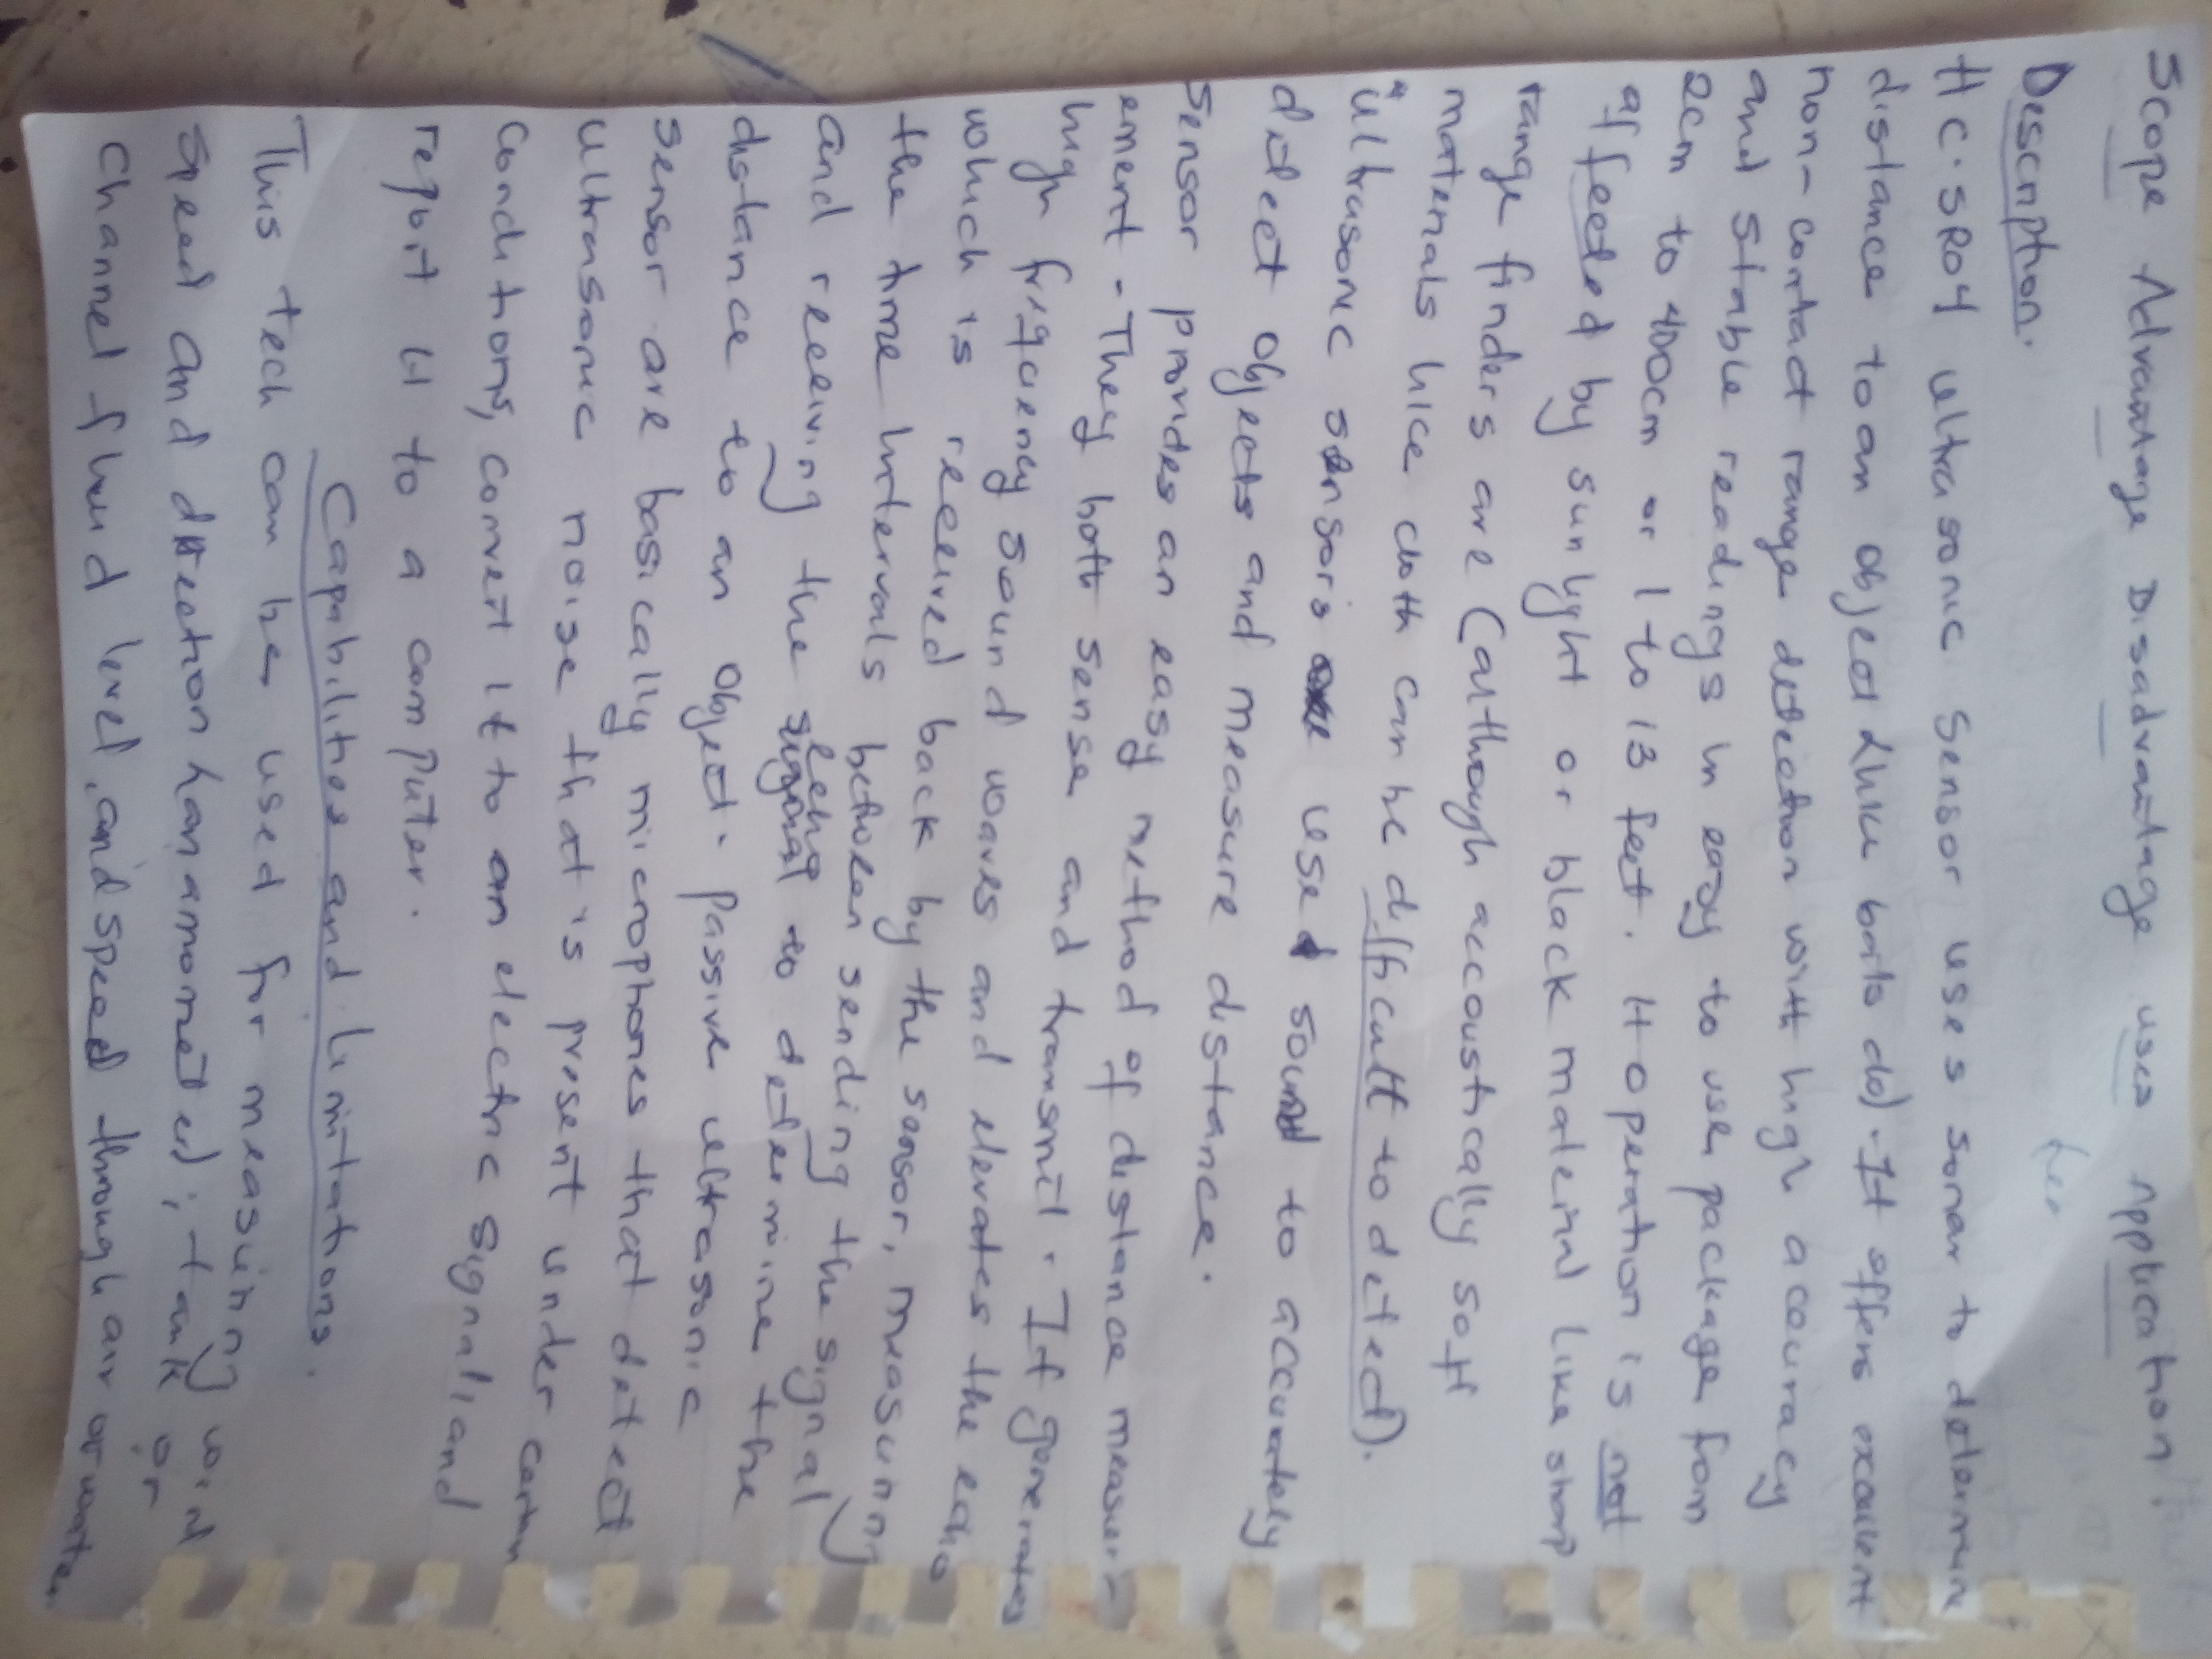 Scope Advantage Disadvantage uses Application.
Description.
HC-SR04 ultrasonic sensor uses sonar to determine
distance to an object (like bats do). It offers excellent
non-contact range detection with high accuracy
and stable readings in easy to use package from
2cm to 400cm or 1 to 13 feet. It operation is not
affected by sunlight or black material like sharp
range finders are (although accoustically soft
materials like cloth can be difficult to detect).
ultrasonic sensors use sound to accurately
detect objects and measure distance.
Sensor provides an easy method of distance measur-
ement - They both sense and transmit. It generates
high frequency sound waves and elevates the echo
which is received back by the sensor, measuring
the time intervals between sending the signal
and receiving the echo signal to determine the
distance to an object. passive ultrasonic
sensor are basically microphones that detect
ultrasonic noise that is present under certain
conditions, convert it to an electric signal, and
report it to a computer.
Capabilities and limitations.
This tech can be used for measuring wind
speed and direction (anamometer), tank or
channel fluid level, and speed through air or water